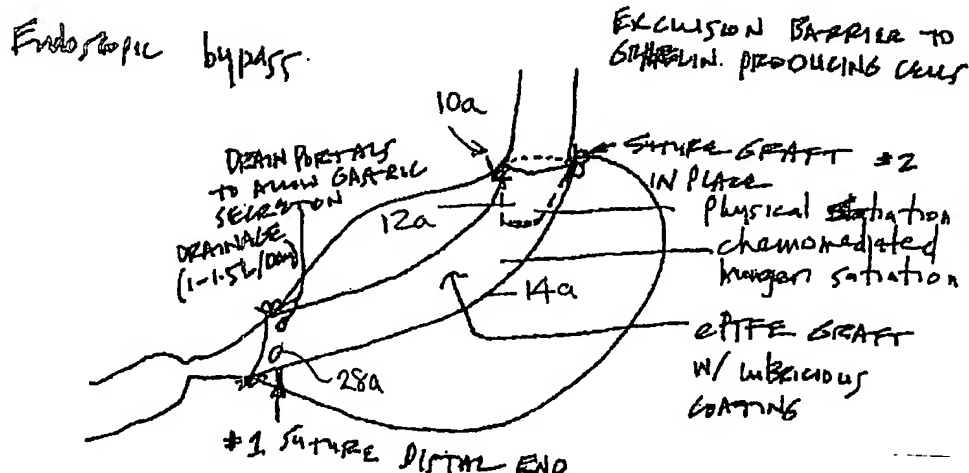 Endoscopic bypass.
EXCLUSION BARRIER TO
GHRELIN. PRODUCING CELLS
10a
DRAIN PORTALS
TO ALLOW GASTRIC
SECRETION
DRAINAGE
(1-1.5L/Day)
SUTURE GRAFT #2
IN PLACE
12a
Physical satiation
chemomediated
hunger satiation
14a
ePTFE GRAFT
W/ LUBRICIOUS
COATING
28a
#1 SUTURE DISTAL END